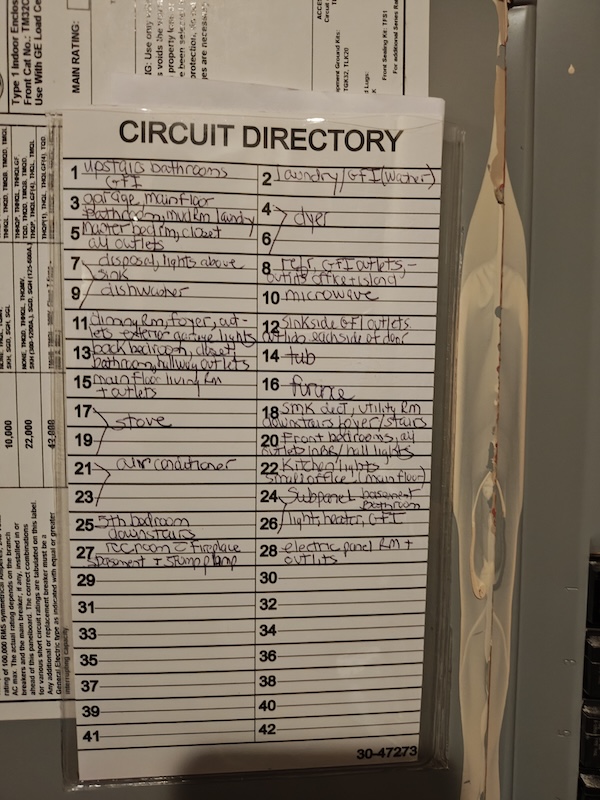 Type 1 Indoor Enclos
Front Cat No.: TM32C
Use With GE Load Ce
MAIN RATING:
IG: Use only
s voids the
property lo
been sele
ges are necess
Circuit
TGK32, TLK20
Front Sealing Kit: TFS1
For additional Series Ra
10,000
22,000
42,000
rating of 100,000 RMS symmetrical
AC max. The actual rating depends on the branch
breakers and the main breaker, if any, installed in or
ahead of this panelboard. The correct combinations
for various short circuit ratings are tabulated on this label.
Any additional or replacement breaker must be a
General Electric type as indicated with equal or greater
interrupting capacity
CIRCUIT DIRECTORY
1 upstairs bathrooms
GFI
2 laundry/GFI(Water)
3 garage, main floor
bathroom, mudrm laundry
4
dyer
5 master bedrm, closet
all outlets
6
7 disposal, lights above
sink
8 refr, GFI outlets,-
outlts office+island
9 dishwater
10 microwave
11 dinning Rm, foyer, out-
lets exterior garage lights
12 sinkside GFI outlets
outlids eachside of door
13 back bedroom, closet
bathroom, hallway outlets
14 tub
15 main floor living Rm
+ outlets
16 furnace
17
stove
18 SMK dect, utility Rm
downstairs foyer/stairs
19
20 Front bedrooms, all
outlets inBR/hall lights
21 air conditioner
22 Kitchen lights
small office, (main floor)
23
24 Subpanel basement
bathroom
25 5th bedroom
downstairs
26 lights, heater, GFI
27 rec room c fireplace
basement + sump pump
28 electric panel RM +
outlits
29
30
31
32
33
34
35
36
37
38
39
40
41
42
30-47273